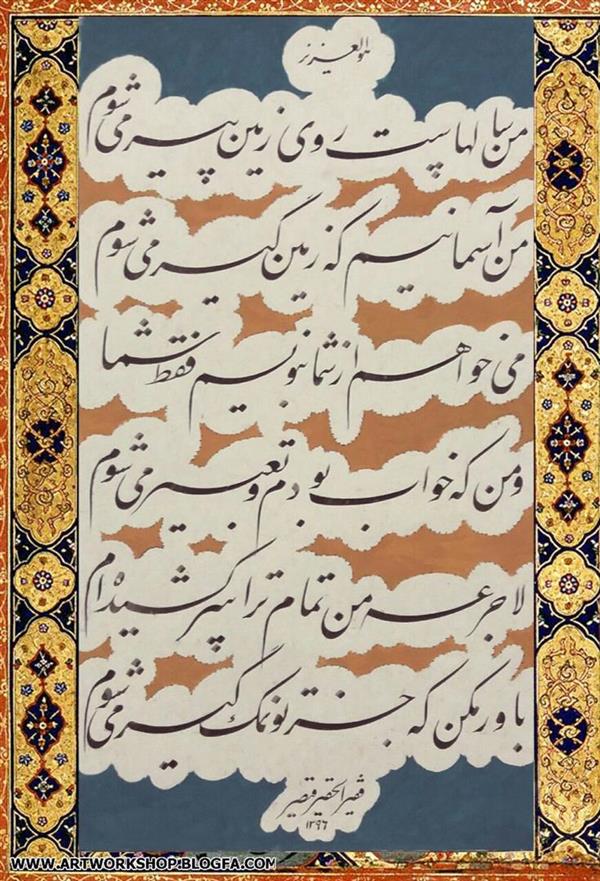 هوالعزیز
من سالهاست روی زمین پیر می شوم
من آسمانیم که زمین گیر می شوم
می خواهم از شما بنویسم فقط شما
ومن که خواب بودم و تعبیر می شوم
لاجرعه من تمام ترا سر کشیده ام
باور مکن که جز تو نمک گیر می شوم
فقیرالحقیر قصیر
۱۳۹۶
WWW.ARTWORKSHOP.BLOGFA.COM